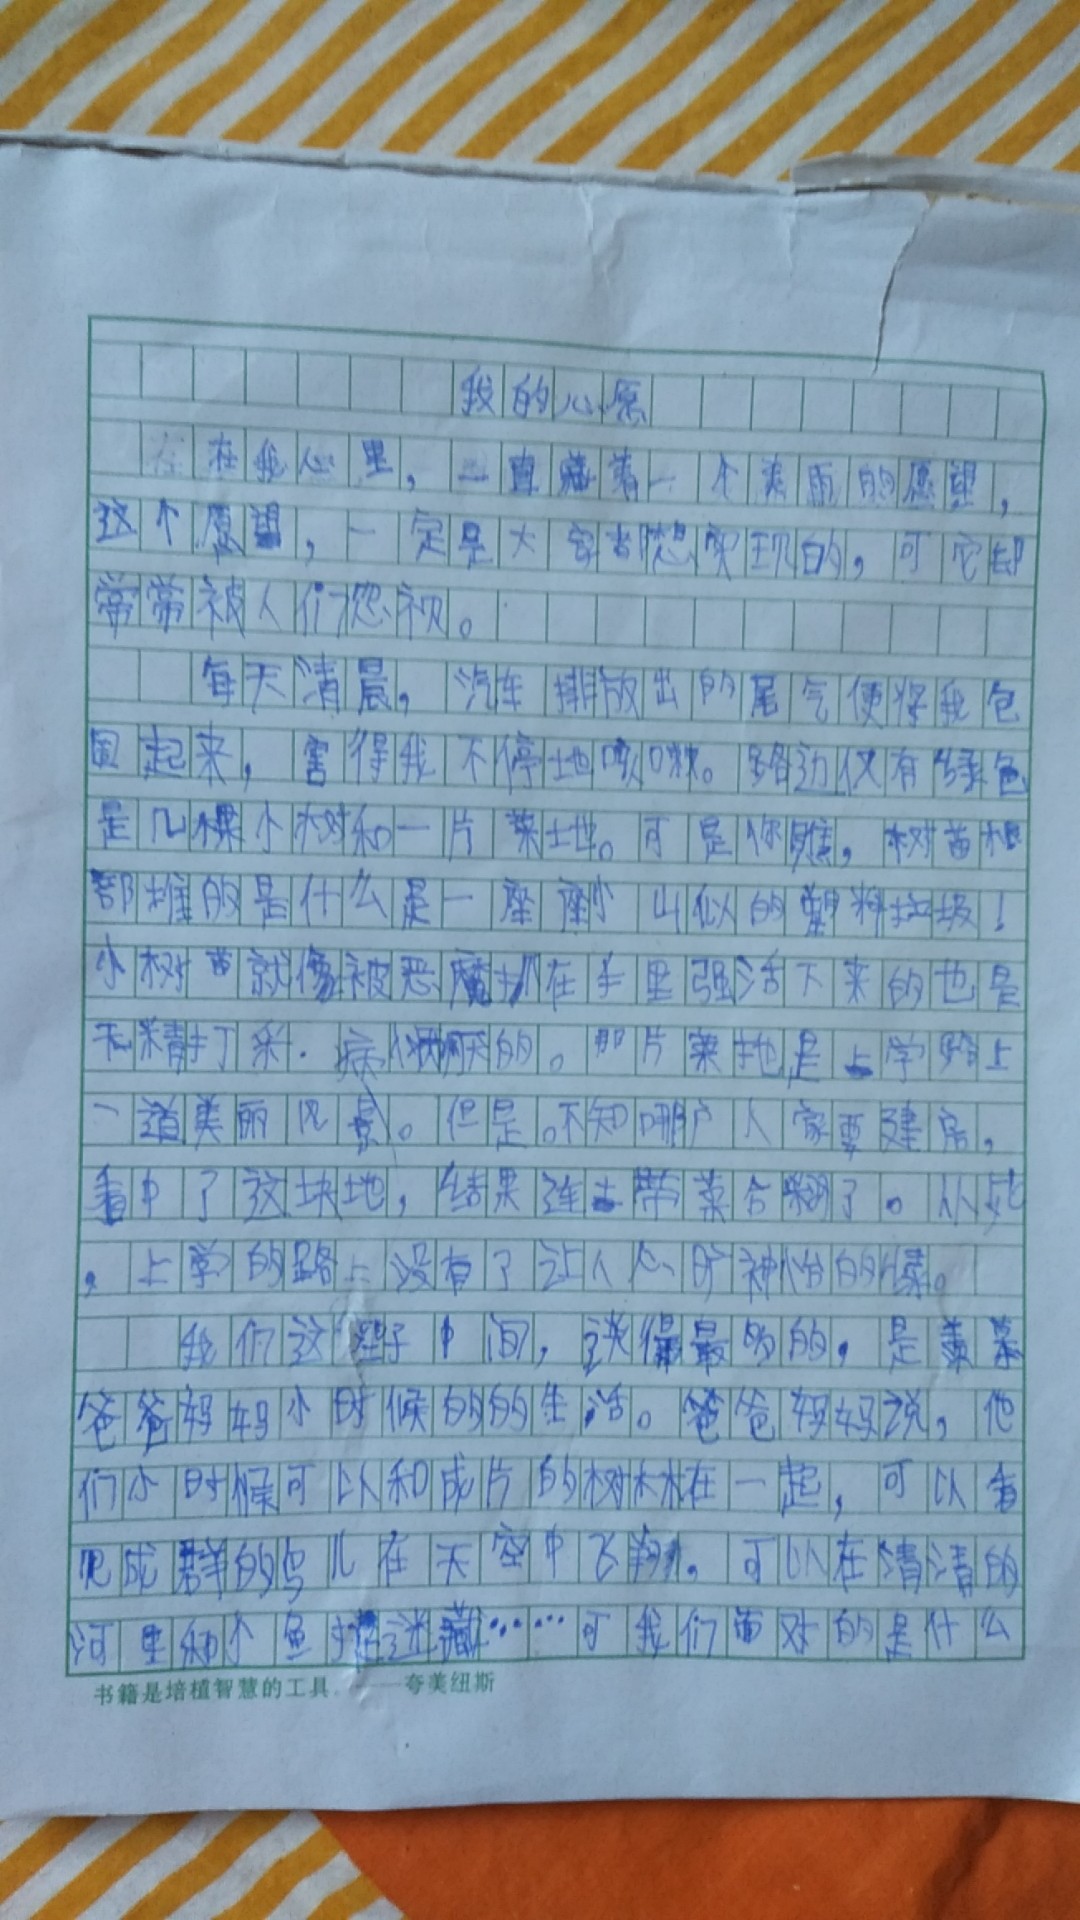 我的心愿
在我心里，一直藏着一个美丽的愿望，
这个愿望，一定是大家都想实现的，可它却
常常被人们忽视。
每天清晨，汽车排放出的尾气便将我包
围起来，害得我不停地咳嗽。路边仅有绿色
是几棵小树和一片菜地。可是你瞧，树苗根
部堆的是什么是一座座小山似的塑料垃圾！
小树苗就像被恶魔抓在手里强活下来的也是
无精打采．病恹恹的。那片菜地是上学路上
一道美丽风景。但是。不知哪户人家要建房，
看中了这块地，结果连土带菜合糊了。从此
，上学的路上没有了让人心旷神怡的绿。
我们这些孩子中间，谈得最多的，是羡慕
爸爸妈妈小时候的的生活。爸爸妈妈说，他
们小时候可以和成片的树林在一起，可以看
见成群的鸟儿在天空中飞翔，可以在清清的
河里和小鱼捉迷藏……可我们面对的是什么
书籍是培植智慧的工具。——夸美纽斯